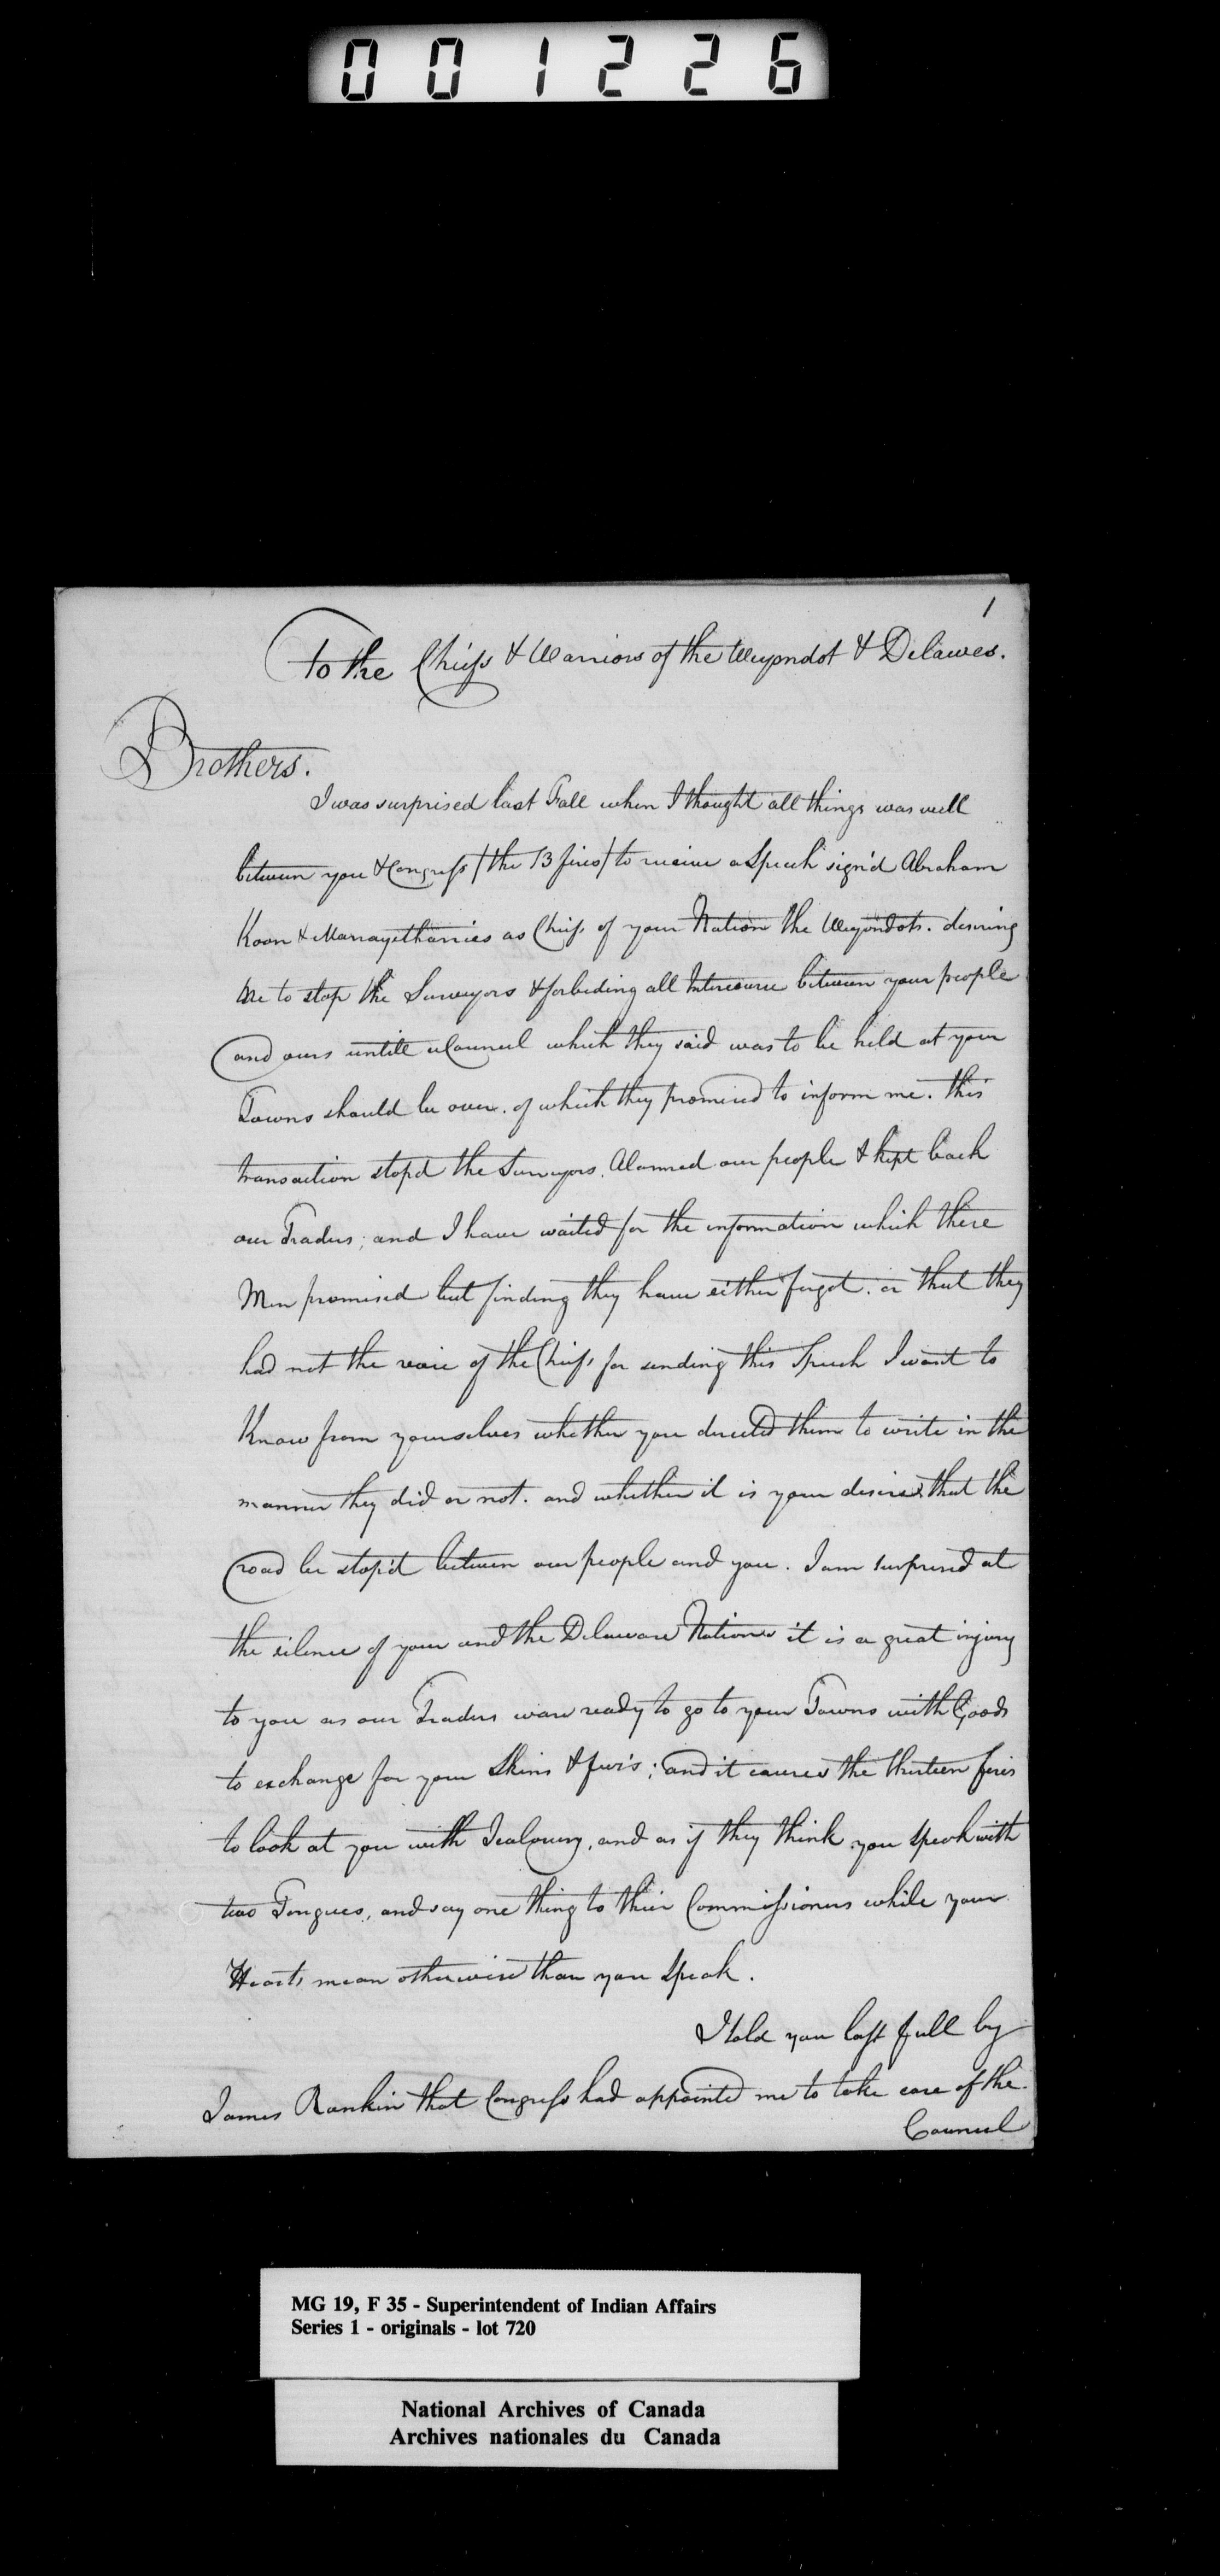 001226
1
To the Chiefs & Warriors of the Weyondot & Delawes.
Brothers.
I was surprised last Fall when I thought all things was well
between you & Congress / the 13 fires / to receive a Speech sign'd Abraham
Koon & Marrayethanies as Chiefs of your Nation the Weyondots. desiring
me to stop the Surveyors & forbeding all Intercourse between your people
and ours untill a Council which they said was to be held at your
Towns should be over. of which they promised to inform me. this
transaction stopd the Surveyors. Alarmed our people & kept back
our Traders; and I have waited for the information which these
Men promised but finding they have either forgot. or that they
had not the voice of the Chiefs for sending this Speech I want to
Know from yourselves whether you directed them to write in the
manner they did or not. and whether it is your desires that the
road be stop'd between our people and you. I am surprised at
the silence of your and the Delaware Nations it is a great injury
to you as our Traders ware ready to go to your Towns with Goods
to exchange for your Skins & furs; and it causes the thirteen fires
to look at you with Jealousy, and as if they think you speak with
two Tongues, and say one thing to their Commissioners while your
Hearts mean otherwise than you Speak.
I told you last fall by
James Rankin that Congress had appointed me to take care of the
Council
MG 19, F 35 - Superintendent of Indian Affairs
Series 1 - originals - lot 720
National Archives of Canada
Archives nationales du Canada